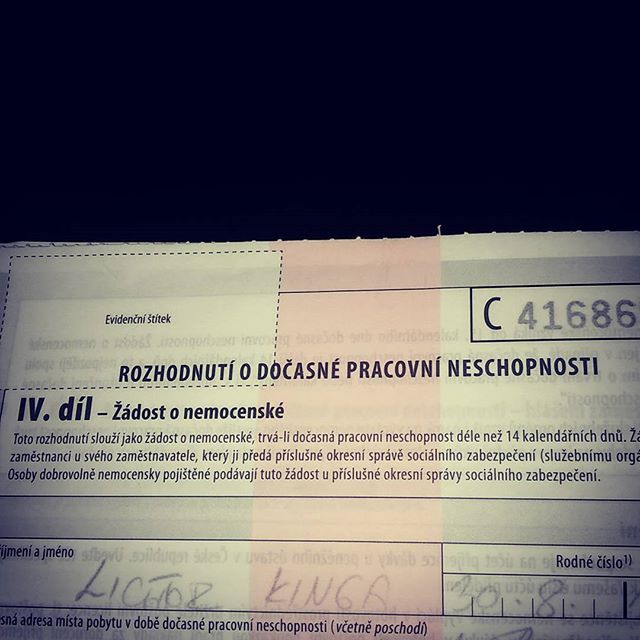 Evidenční štítek
C 41686
ROZHODNUTÍ O DOČASNÉ PRACOVNÍ NESCHOPNOSTI
IV. díl – Žádost o nemocenské
Toto rozhodnutí slouží jako žádost o nemocenské, trvá-li dočasná pracovní neschopnost déle než 14 kalendářních dnů.
zaměstnanci u svého zaměstnavatele, který ji předá příslušné okresní správě sociálního zabezpečení (služebnímu
Osoby dobrovolně nemocensky pojištěné podávají tuto žádost u příslušné okresní správy sociálního zabezpečení.
a jméno
Rodné číslo¹⁾
KINGA
adresa místa pobytu v době dočasné pracovní neschopnosti (včetně poschodí)